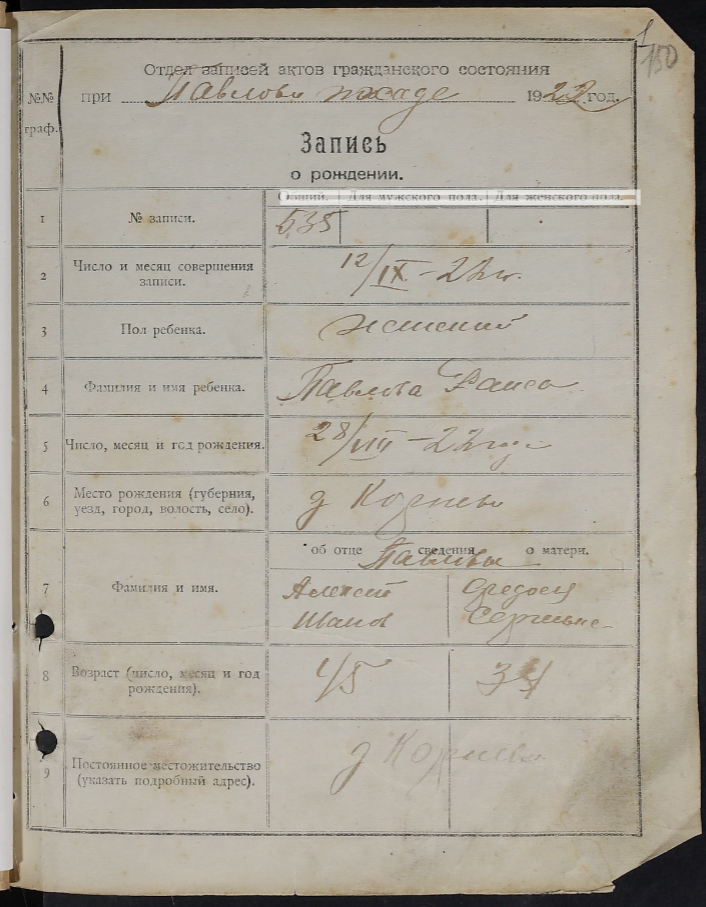 150
Отдел записей актов гражданского состояния
№№ граф.
при Павлово посаде 1922 год.
Запись
о рождении.
Общий. Для мужского пола. Для женского пола.
1 № записи. 535
2 Число и месяц совершения записи. 12/IX - 22 г.
3 Пол ребенка. женский
4 Фамилия и имя ребенка. Павлова Раиса
5 Число, месяц и год рождения. 28/VIII - 22 года
6 Место рождения (губерния, уезд, город, волость, село). д
об отце сведения о матери.
Павловы
7 Фамилия и имя. Алексей Федосья
Иванов Сергеевна
8 Возраст (число, месяц и год рождения). 45 34
9 Постоянное местожительство (указать подробный адрес). д